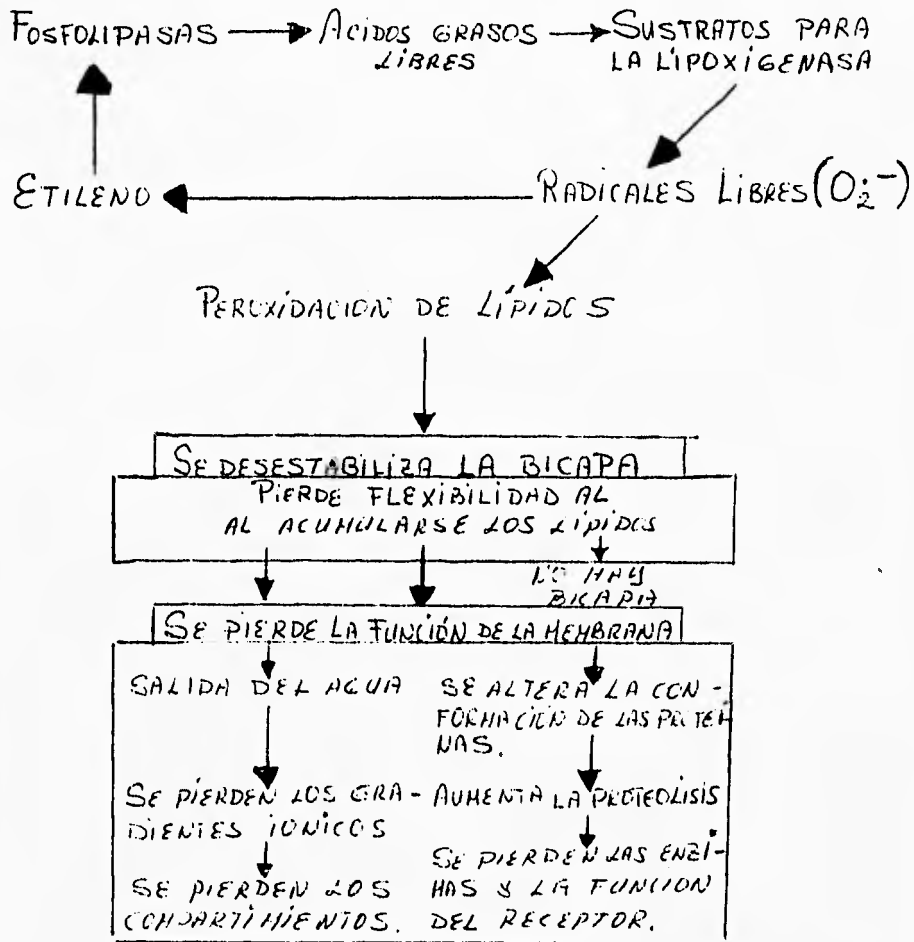 FOSFOLIPASAS
ÁCIDOS GRASOS
LIBRES
SUSTRATOS PARA
LA LIPOXIGENASA
ETILENO
RADICALES LIBRES (O₂·⁻)
PEROXIDACION DE LÍPIDOS
SE DESESTABILIZA LA BICAPA
PIERDE FLEXIBILIDAD AL
AL ACUMULARSE LOS LÍPIDOS
NO HAY
BICAPA
SE PIERDE LA FUNCIÓN DE LA MEMBRANA
SALIDA DEL AGUA
SE PIERDEN LOS GRA-
DIENTES IÓNICOS
SE PIERDEN LOS
COMPARTIMIENTOS.
SE ALTERA LA CON-
FORMACIÓN DE LAS PROTEI
NAS.
AUMENTA LA PROTEOLISIS
SE PIERDEN LAS ENZI-
MAS Y LA FUNCION
DEL RECEPTOR.